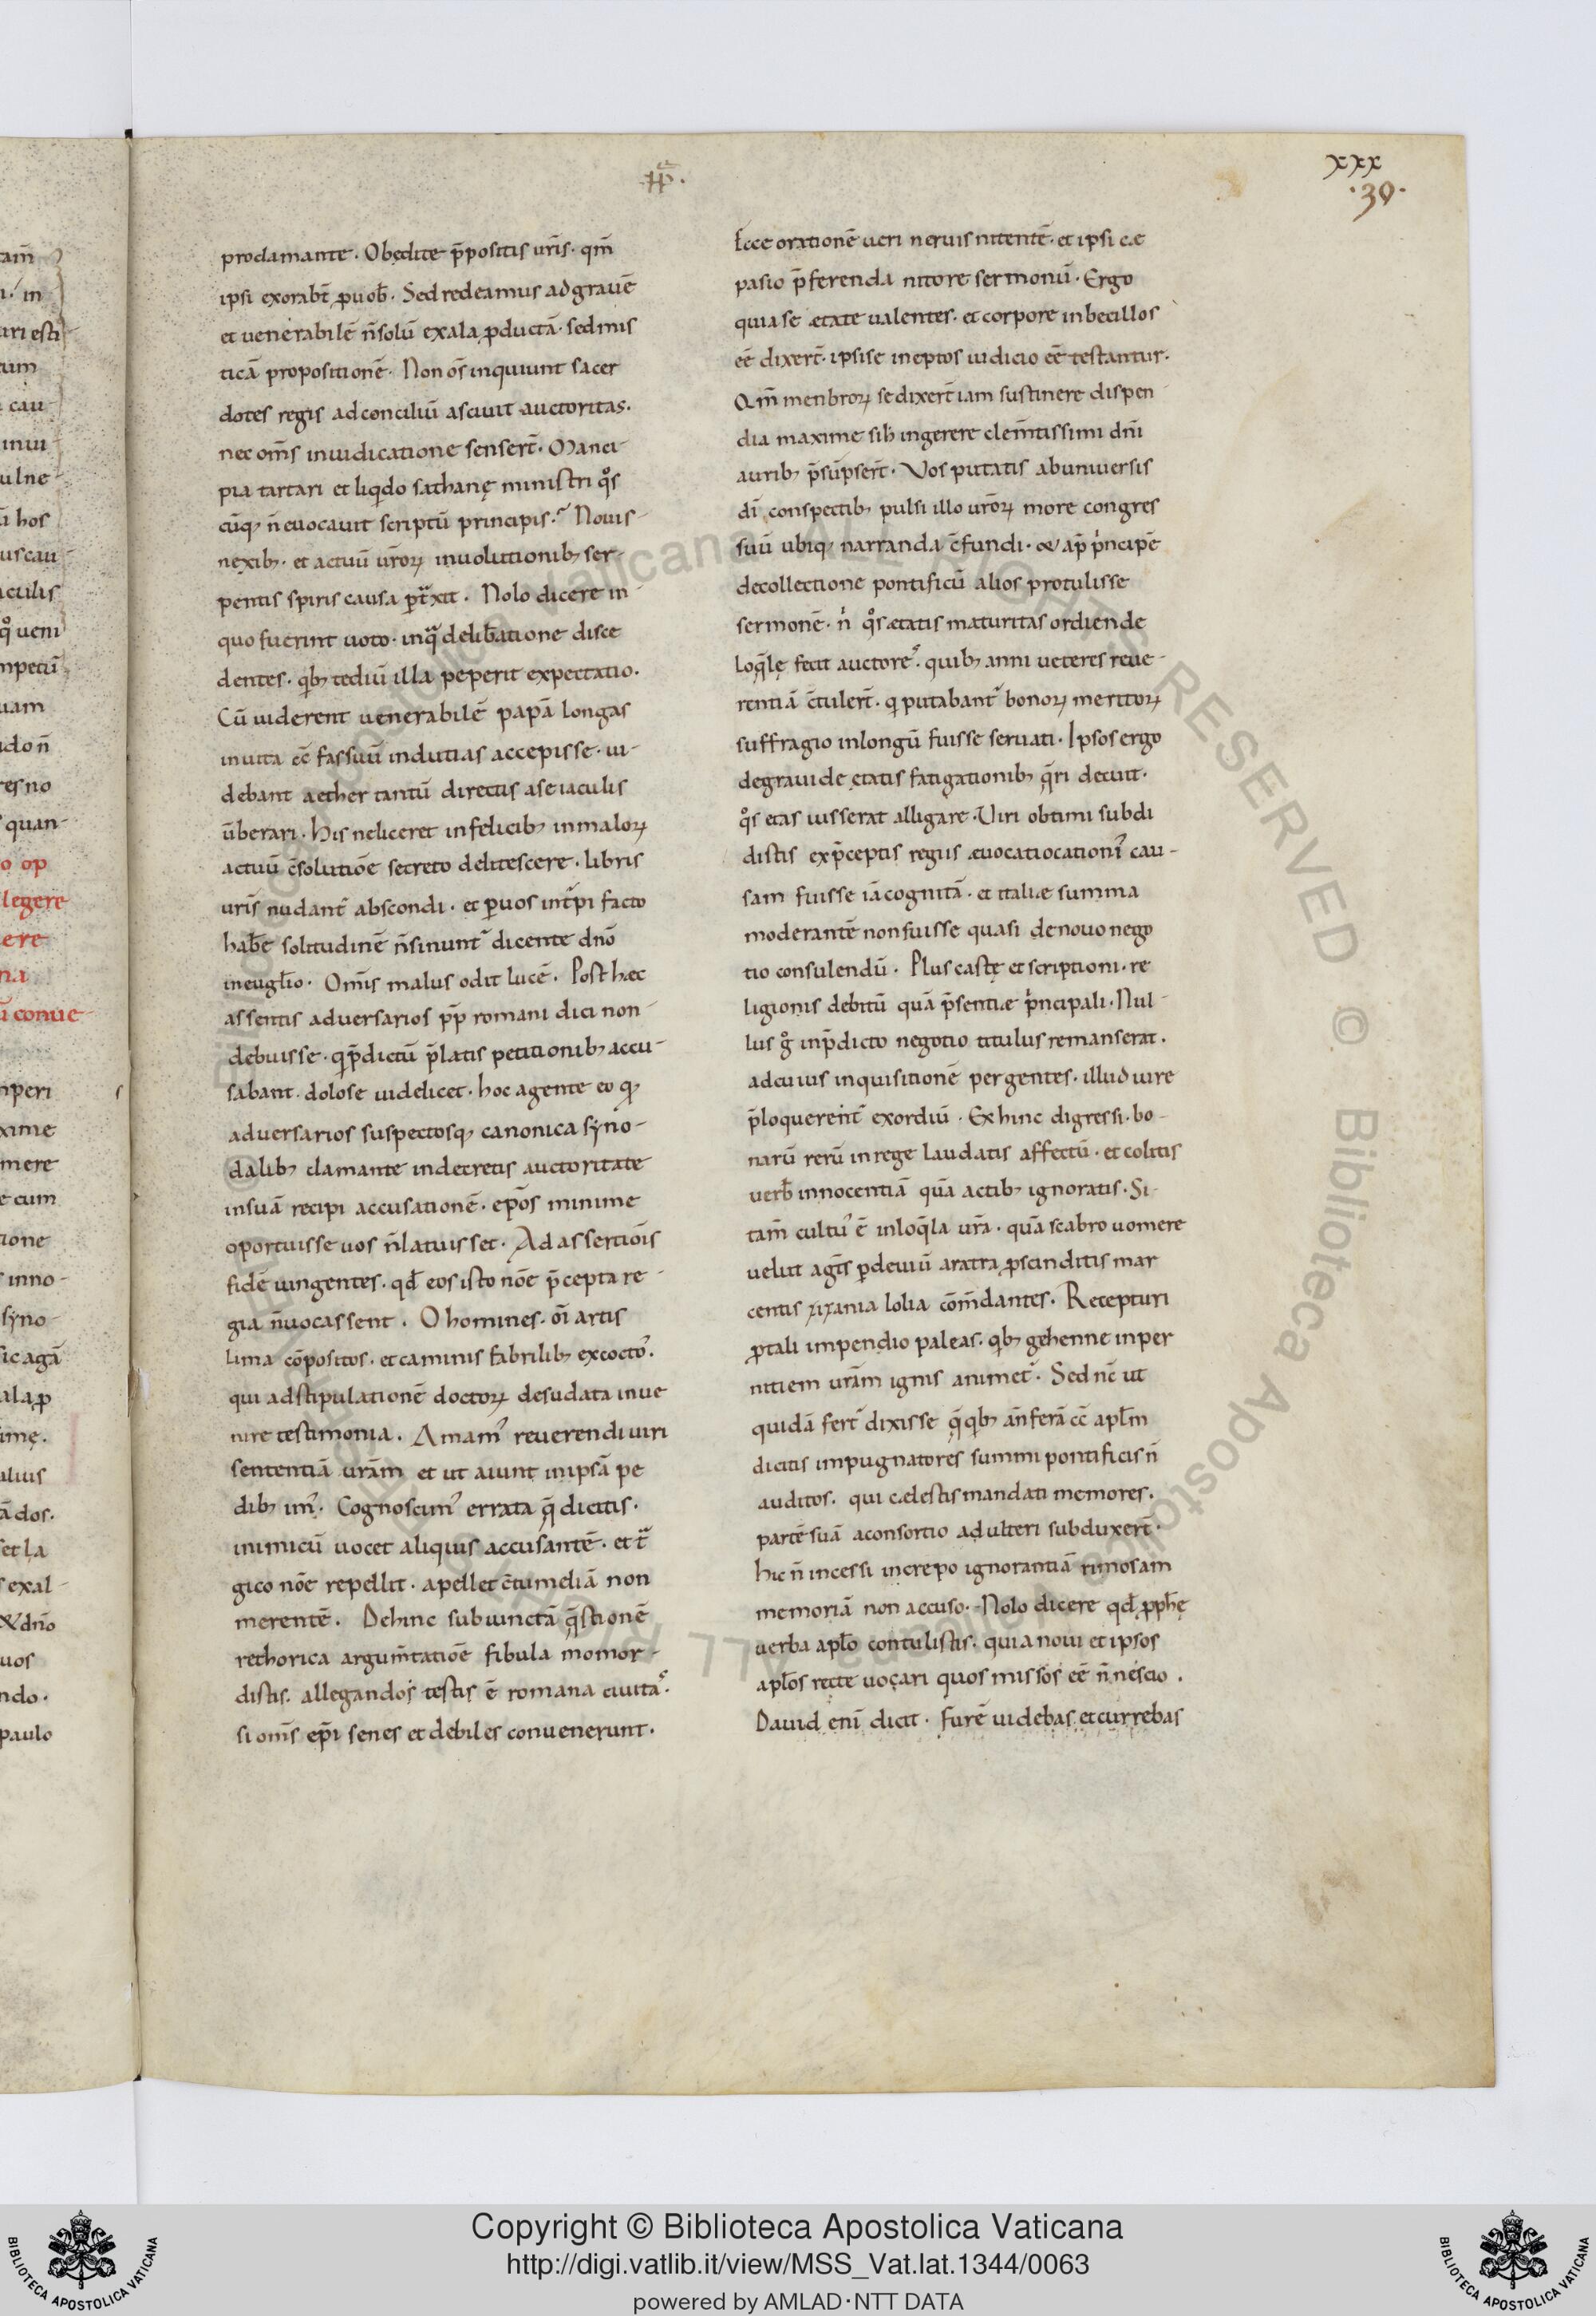 xxx
·30·
proclamante. Obędite p̄positis ur̄is. qm̄
ipsi exorabt̄ ꝓ uob̄. Sed redeamus ad grauē
et uenerabilē n̄ solū ex ala ꝓductā. sed mis
ticā propositionē. Non oēs inquiunt sacer
dotes regis ad conciliū asciuit auctoritas.
nec om̄s in iudicatione senserт̄. Manci-
pia tartari et liqido sathanę ministri qͦs
cūq; n̄ euocauit scriptū principis. Nouis-
nexib;. et actuū ur̄oꝝ inuolutionib; ser-
pentis spiris causa ꝑtͣxit. Nolo dicere in-
quo fuerint uoto. in qͣ delib̄atione disce
dentes. qb; tediū illa peperit expectatio.
Cū uiderent uenerabilē papā longas
in uita eē fassuū indutias accepisse. ui-
debant aether tantū directis a se iaculis
ūberari. His ne liceret infelicib; in maloꝝ
actuū c̄solutiōe secreto delitescere. libris
uris nudant᷑ abscondi. et ꝑ uos int̄pi facto
hab̄e solitudinē n̄ sinunt᷑ dicente dn̄o
in eugl̄io. Om̄is malus odit lucē. Post hæc
assentis aduersarios pp̄ romani dici non-
debuisse. qi p̄dictū p̄latis petitionib; accu-
sabant. dolose uidelicet. hoc agente eo qd
aduersarios suspectosq; canonica syno-
dalib; clamante in decretis auctoritate
in suā recipi accusationē. ep̄os minime
oportuisse uos n̄ latuisset. Ad assertiōis
fidē iungentes. qd̄ eos isto nōe p̄cepta re-
gia n̄ uocassent. O homines. oī artis
lima cōpositos. et caminis fabrilib; excoctoꝰ.
qui adstipulationē doctoꝝ desudata inue
nire testimonia. Amamꝰ reuerendi uiri
sententiā ur̄am et ut aiunt in ipsā pe
dib; imꝰ. Cognoscimꝰ errata q̄ dicitis.
inimicū uocet aliquis accusantē. et tͣ
gico nōe repellit. apellet c̄tumeliā non
merentē. Dehinc subiunctā q̄stionē
rethorica argum̄tatiōe fibula momor-
distis. allegandos testis ē romana ciuitaˢ.
si om̄s ep̄i senes et debiles conuenerunt.
Ecce orationē ueri neruis nitentē. et ipsi e.e
pasio p̄ferenda nitore sermonū. Ergo
quia se ætate ualentes. et corpore inbecillos
eē dixert̄. ipsi se ineptos iudicio eē testantur.
Qm̄ menbroꝝ se dixert̄ iam sustinere dispen-
dia maxime sibi ingerere clem̄tissimi dn̄i
aurib; p̄sūpsert̄. Vos putatis ab uniuersis
dī conspectib; pulsi illo uroꝝ more congres
suū ubiq; narranda c̄fundi. & ap̄ pͥncipē
de collectione pontificū alios protulisse
sermonē. nͥ qͦs ætatis maturitas ordiendę
loq̄lę fecit auctoreˢ. quib; anni ueteres reue-
rentiā c̄tulert̄. qi putabant᷑ bonoꝝ meritoꝝ
suffragio in longū fuisse seruati. Ipsos ergo
de grauidę ętatis fatigationib; q̄ri decuit.
qͦs etas iusserat alligare. Viri obtimi subdi
distis ex p̄ceptis regiis æuocatiocationiꝰ cau-
sam fuisse iā cognitā. et italiæ summa
moderantē non fuisse quasi de nouo nego
tio consulendū. Plus castę et scriptioni. re
ligionis debitū quā p̄sentiæ pͥncipali. Nul-
lus gͦ in p̄dicto negotio titulus remanserat.
ad cuius inquisitionē pergentes. illud iure
p̄loquerent᷑ exordiū. Ex hinc digressi. bo-
narū rerū in rege laudatis affectū. et colitis
uerb̄ innocentiā quā actib; ignoratis. Si-
tam̄ cultuꝰ ē in loq̄la ur̄a. quā scabro uomere
uelut agt̄is ꝑ deuiū aratra ꝓscinditis mar
centis zizania lolia com̄dantes. Recepturi
ꝓ tali impendio paleas. qb; gehenne in per
nitiem ur̄am ignis animet᷑. Sed nc̄ ut
quidā fert᷑ dixisse q̄ qb; an̄ ferā cc̄ apl̄m
dicitis impugnatores summi pontificis n̄
auditos. qui cælestis mandati memores.
partē suā a consortio adulteri subduxert̄.
Hic n̄ incessi increpo ignorantiā rimosam
memoriā non accuso. Nolo dicere qd̄ ꝓph̄ę
uerba apl̄o contulistis. quia noui et ipsos
apl̄os recte uocari quos missos eē n̄ nescio.
Dauid enī dicit. Furē uidebas et currebas
Copyright © Biblioteca Apostolica Vaticana
http://digi.vatlib.it/view/MSS_Vat.lat.1344/0063
powered by AMLAD·NTT DATA